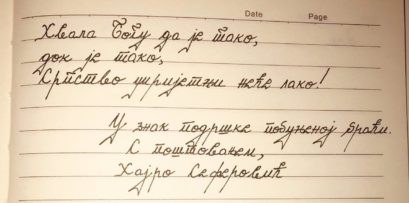 Date Page
Хвала Богу да је тако,
док је тако,
Српство умријетни неће лако!
У знак подршке побуњеној браћи.
С поштовањем,
Хајро Сеферовић